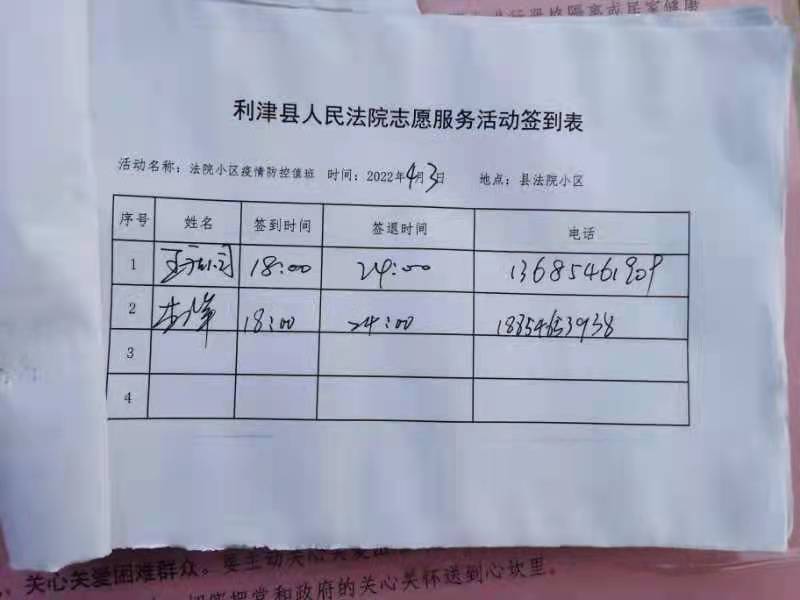 利津县人民法院志愿服务活动签到表
活动名称：法院小区疫情防控值班 时间：2022年4月3日 地点：县法院小区
序号 姓名 签到时间 签退时间 电话
1 18:00 24:00 13685461909
2 18:00 24:00
3
4
关心关爱困难群众。要主动关心关爱
把党和政府的关心关怀送到心坎里。